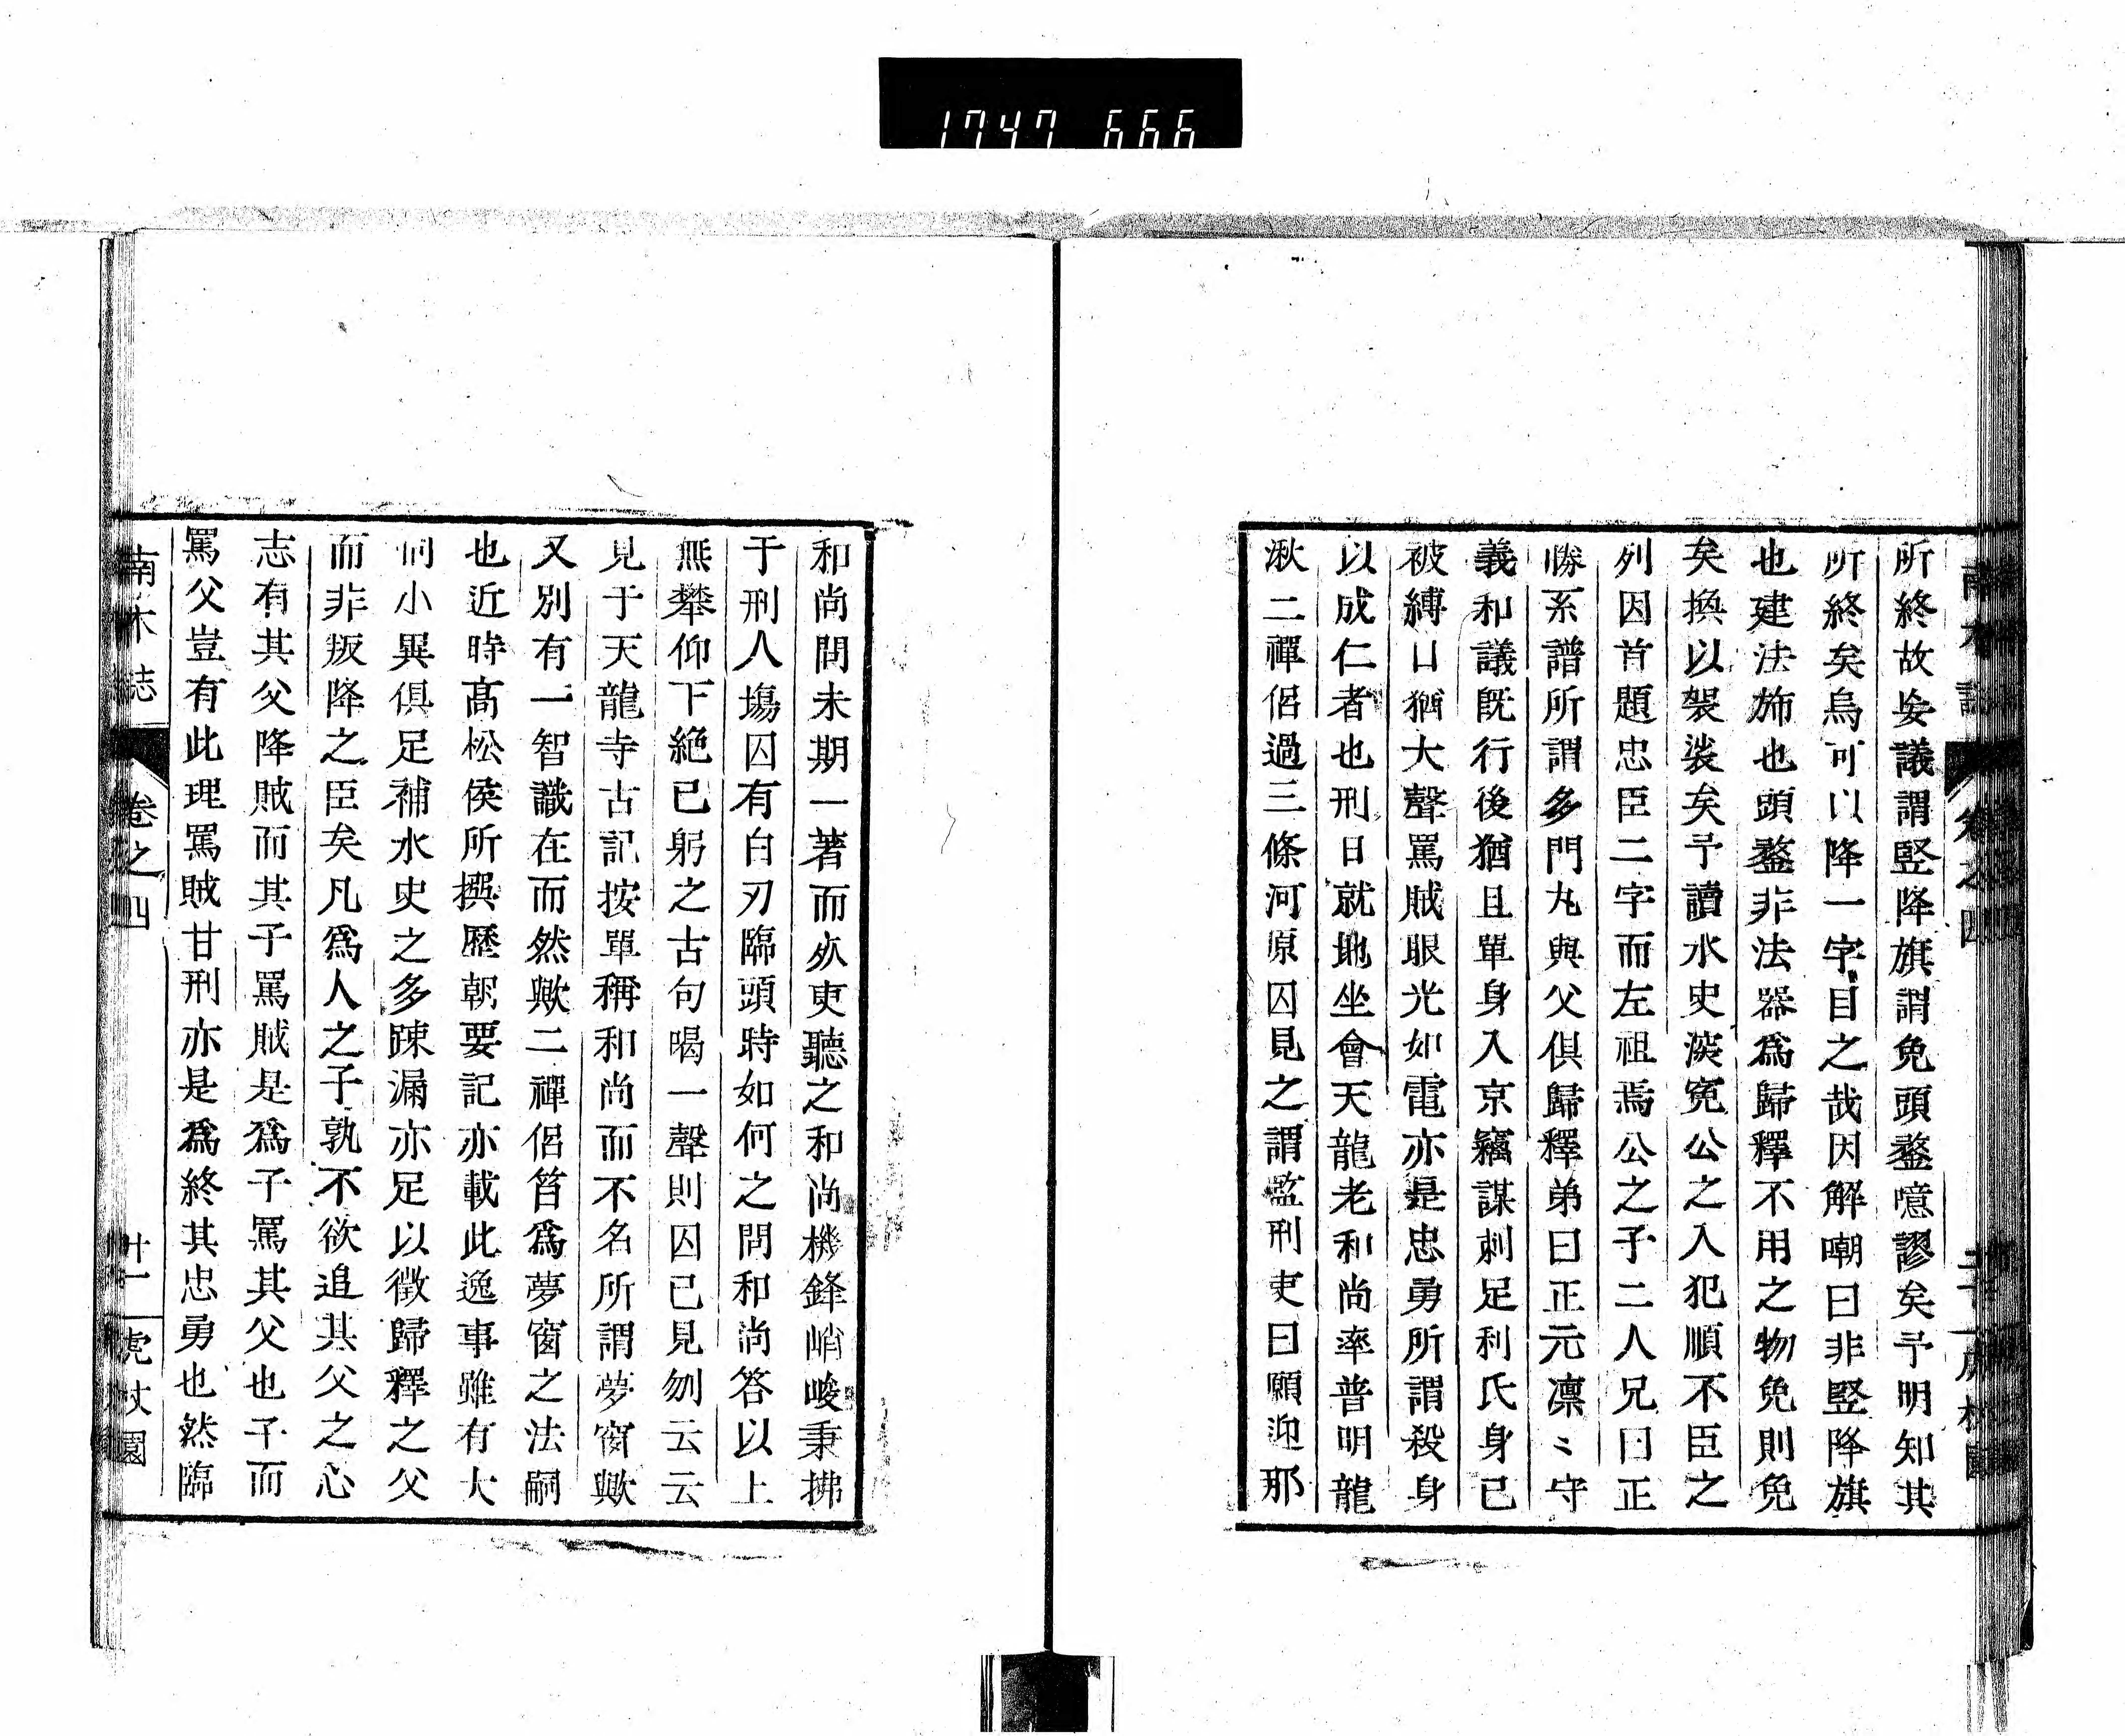 1747 666
所終故妄議謂竪降旗謂免頭鍪噫謬矣予明知其
所終矣烏可以降一字目之哉因解嘲曰非竪降旗
也建法旆也頭鍪非法器爲歸釋不用之物免則免
矣換以袈裟矣予讀水史深寃公之入犯順不臣之
列因首題忠臣二字而左祖焉公之子二人兄曰正
勝系譜所謂多門丸與父俱歸釋弟曰正元凛〻守
義和議既行後猶且單身入京竊謀刺足利氏身已
被縛口猶大聲罵賊眼光如電亦是忠勇所謂殺身
以成仁者也刑日就地坐會天龍老和尚率普明龍
湫二禪侶過三條河原囚見之謂監刑吏曰願迎那
和尚問末期一著而死吏聽之和尚機鋒峭峻秉拂
于刑人塲囚有白刃臨頭時如何之問和尚答以上
無攀仰下絶已躬之古句喝一聲則囚已見刎云云
見于天龍寺古記按單稱和尚而不名所謂夢窗歟
又別有一智識在而然歟二禪侶皆爲夢窗之法嗣
也近時髙松侯所撰歷朝要記亦載此逸事雖有大
同小異俱足補水史之多踈漏亦足以徵歸釋之父
而非叛降之臣矣凡爲人之子孰不欲追其父之心
志有其父降賊而其子罵賊是爲子罵其父也子而
罵父豈有此理罵賊甘刑亦是爲終其忠勇也然臨
南木誌 卷之四 廿一 虎杖園